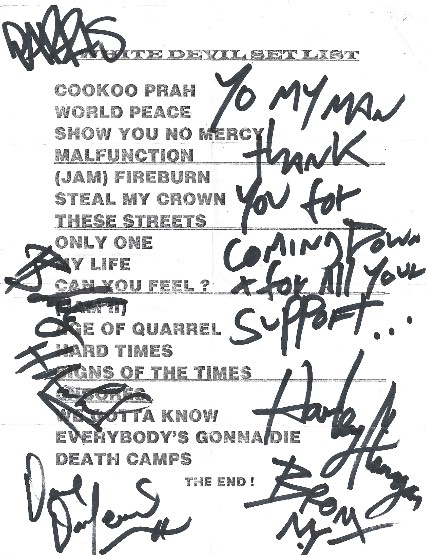 WHITE DEVIL SET LIST
COOKOO PRAH
WORLD PEACE
SHOW YOU NO MERCY
MALFUNCTION
(JAM) FIREBURN
STEAL MY CROWN
THESE STREETS
ONLY ONE
MY LIFE
CAN YOU FEEL ?
(JAM II)
AGE OF QUARREL
HARD TIMES
SIGNS OF THE TIMES
ENCORES
WE GOTTA KNOW
EVERYBODY'S GONNA DIE
DEATH CAMPS
THE END !
YO MY MAN
thANK
YOU for
COMING DOWN
x for All YOUR
SUPPORT...
Harley Flanagan